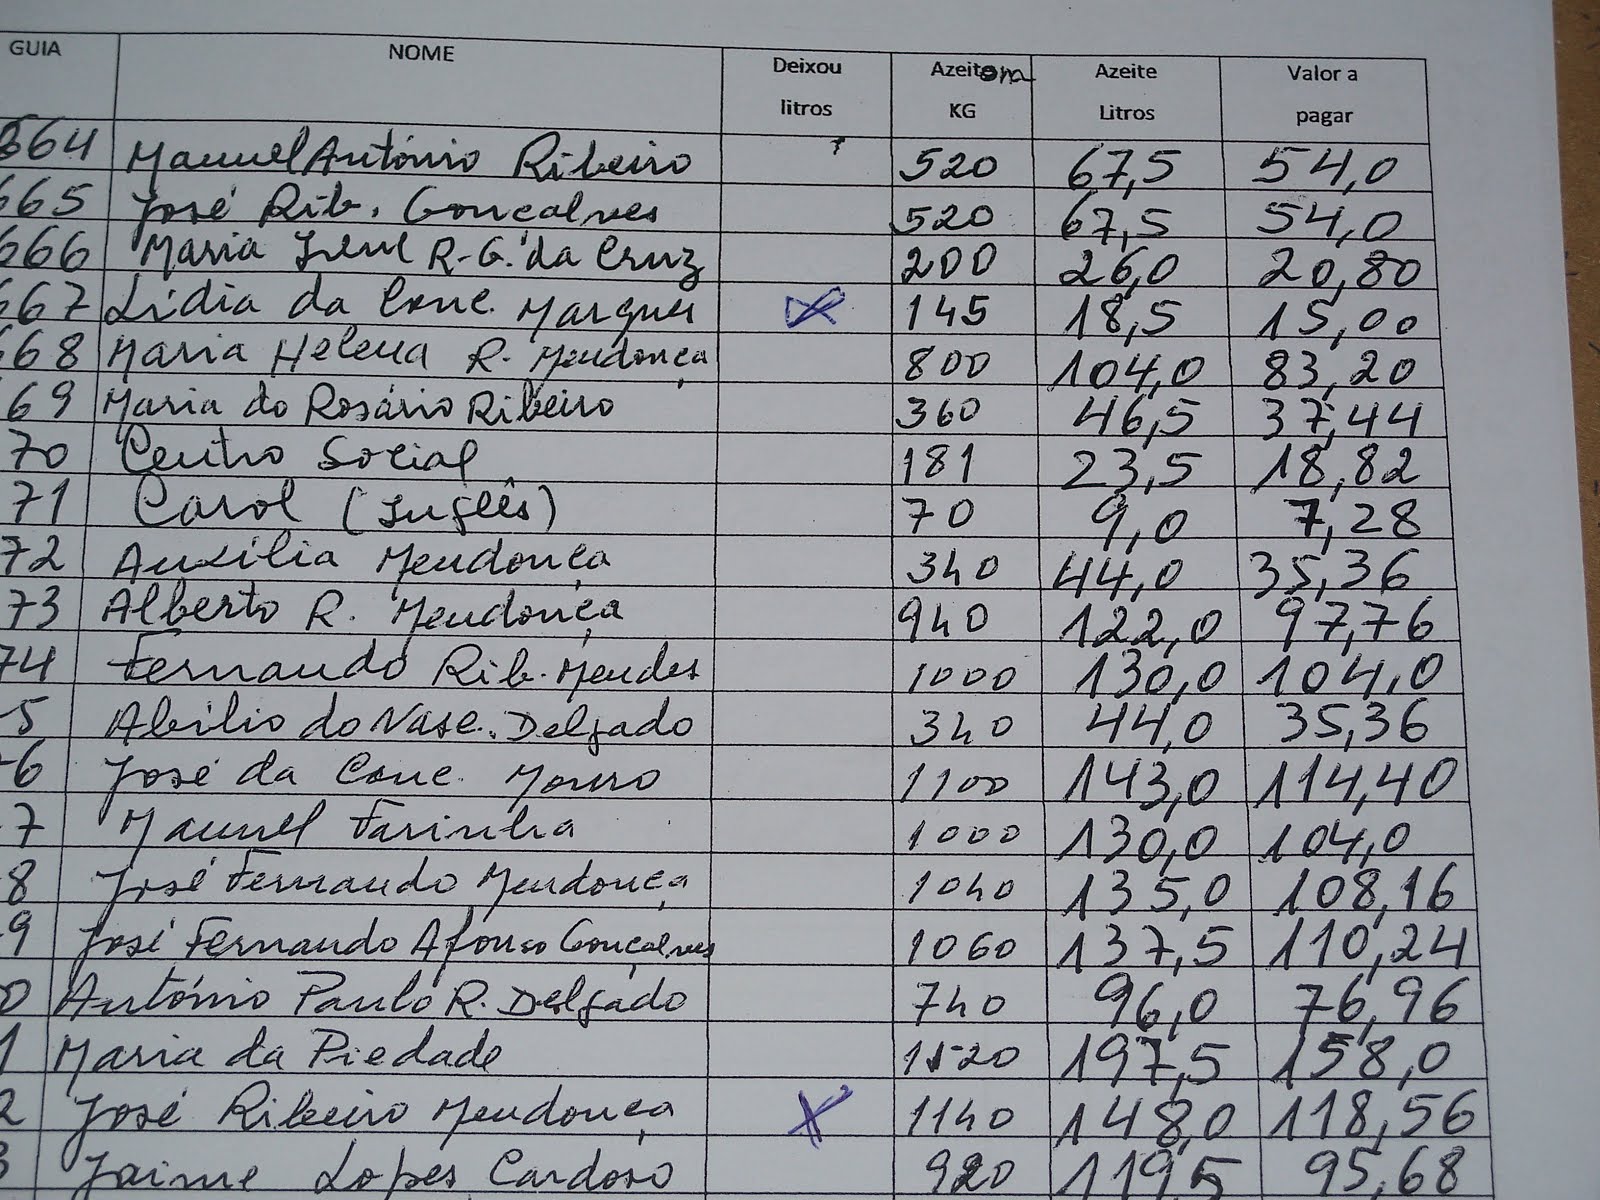 GUIA NOME Deixou litros Azeitona KG Azeite Litros Valor a pagar
664 Manuel António Ribeiro 520 67,5 54,0
665 José Rib. Gonçalves 520 67,5 54,0
666 Maria Irene R. G. da Cruz 200 26,0 20,80
667 Lídia da Conc. Marques X 145 18,5 15,00
668 Maria Helena R. Mendonça 800 104,0 83,20
69 Maria do Rosário Ribeiro 360 46,5 37,44
70 Centro Social 181 23,5 18,82
71 Carol (Inglês) 70 9,0 7,28
72 Auxília Mendonça 340 44,0 35,36
73 Alberto R. Mendonça 940 122,0 97,76
74 Fernando Rib. Mendes 1000 130,0 104,0
5 Abílio do Nasc. Delgado 340 44,0 35,36
6 José da Conc. Mouro 1100 143,0 114,40
7 Manuel Farinha 1000 130,0 104,0
8 José Fernando Mendonça 1040 135,0 108,16
9 José Fernando Afonso Gonçalves 1060 137,5 110,24
0 António Paulo R. Delgado 740 96,0 76,96
1 Maria da Piedade 1520 197,5 158,0
2 José Ribeiro Mendonça X 1140 148,0 118,56
3 Jaime Lopes Cardoso 920 119,5 95,68